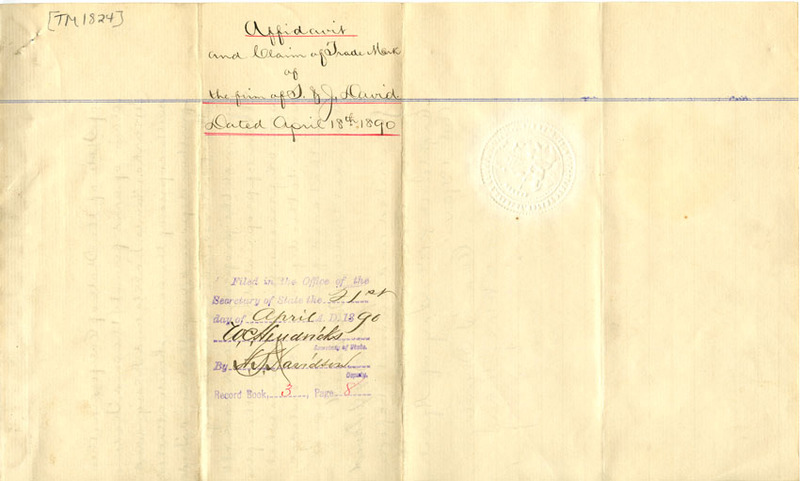 [TM1824]
Affidavit
and Claim of Trade Mark
of
the firm of S. & J. David
Dated April 18th 1890
Filed in the Office of the
Secretary of State the 21st
day of April A. D. 1890
W.C. Hendricks
Secretary of State.
By Davidson
Deputy.
Record Book, 3, Page 8